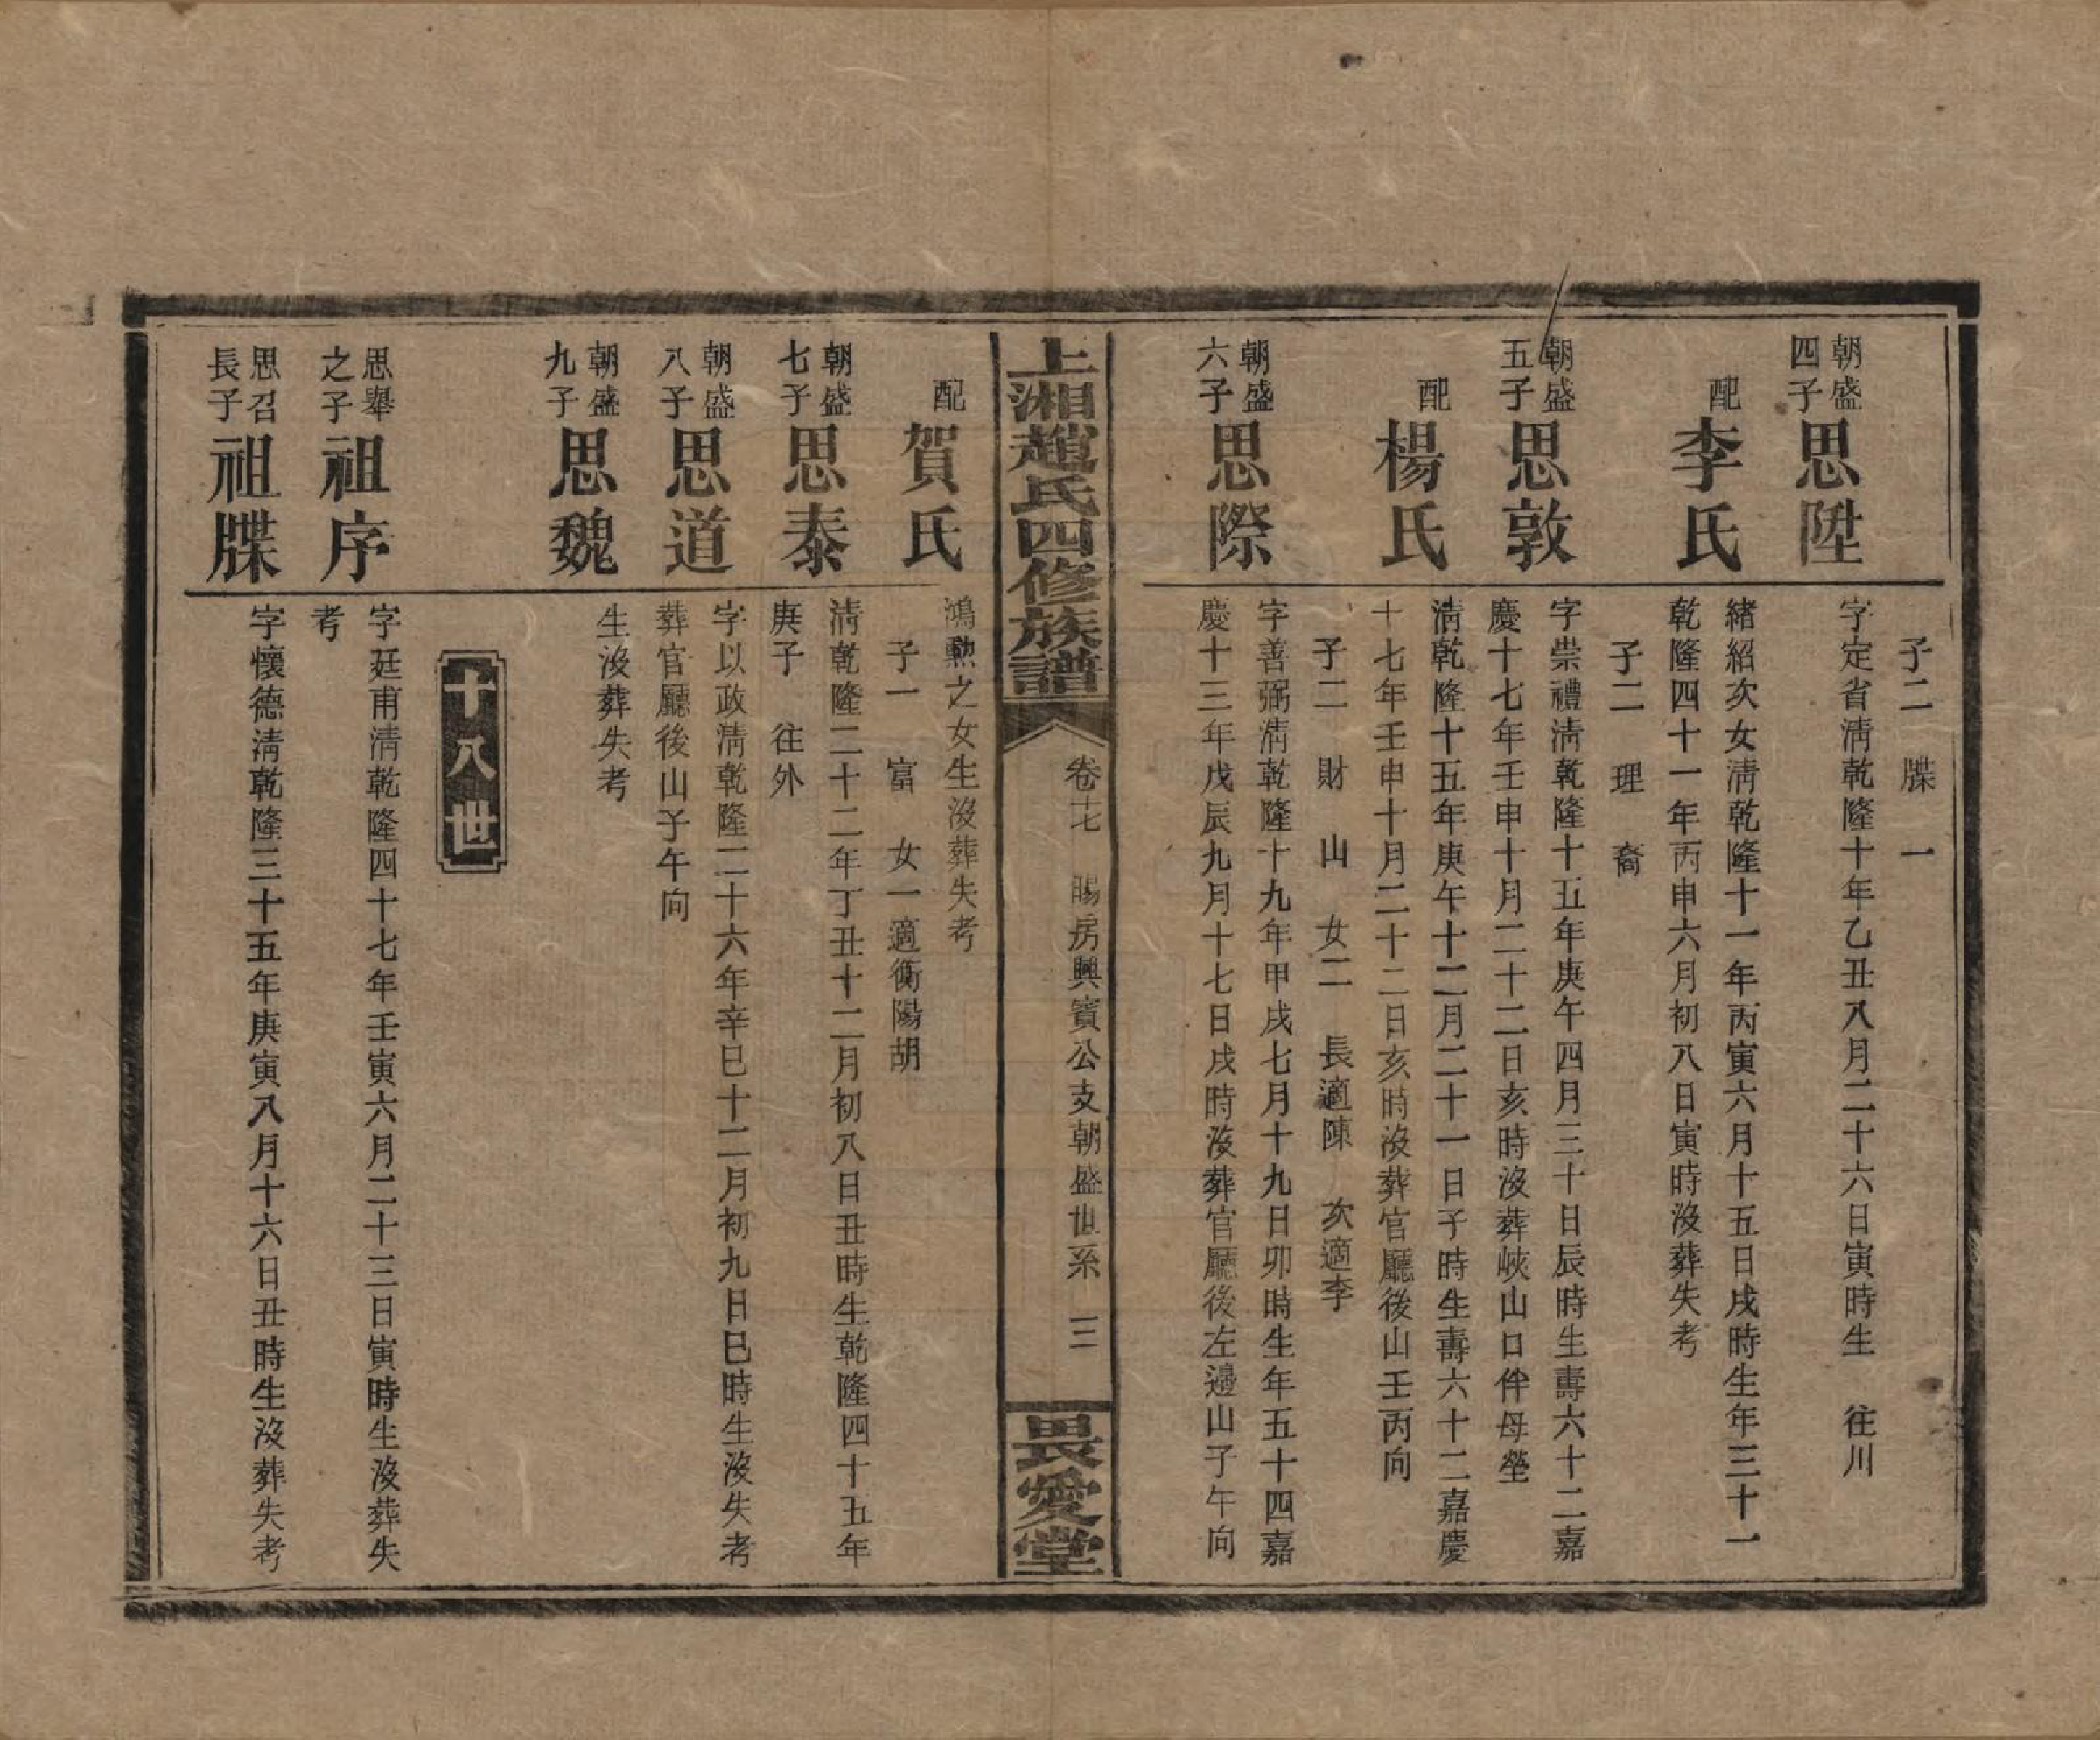 子二 牒 一
朝盛四子 思陞 字定省淸乾隆十年乙丑八月二十六日寅時生 往川
配 李氏 緒紹次女淸乾隆十一年丙寅六月十五日戌時生年三十一
乾隆四十一年丙申六月初八日寅時沒葬失考
子二 理 裔
朝盛五子 思敦 字崇禮淸乾隆十五年庚午四月三十日辰時生壽六十二嘉
慶十七年壬申十月二十二日亥時沒葬峽山口伴母塋
配 楊氏 淸乾隆十五年庚午十二月二十一日子時生壽六十二嘉慶
十七年壬申十月二十二日亥時沒葬官廳後山壬丙向
子二 財 山 女二 長適陳 次適李
朝盛六子 思際 字善弼淸乾隆十九年甲戌七月十九日卯時生年五十四嘉
慶十三年戊辰九月十七日戌時沒葬官廳後左邊山子午向
上湘趙氏四修族譜 卷十七 賜房興賓公支朝盛世系 三 畏愛堂
配 賀氏 鴻勲之女生沒葬失考
子一 富 女一適衡陽胡
朝盛七子 思泰 淸乾隆二十二年丁丑十二月初八日丑時生乾隆四十五年
庚子 往外
朝盛八子 思道 字以政淸乾隆二十六年辛巳十二月初九日巳時生沒失考
葬官廳後山子午向
朝盛九子 思魏 生沒葬失考
十八世
思舉之子 祖序 字廷甫淸乾隆四十七年壬寅六月二十三日寅時生沒葬失
考
思召長子 祖牒 字懷德淸乾隆三十五年庚寅八月十六日丑時生沒葬失考